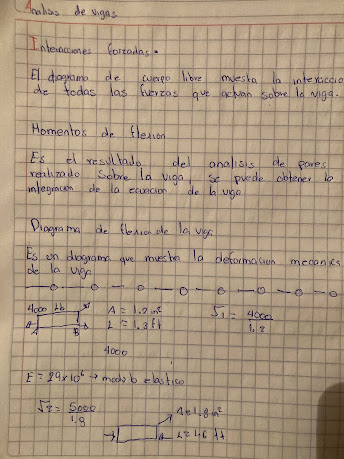 Analisis de vigas
Interacciones forzadas.
El diagrama de cuerpo libre muestra la interaccio
de todas las fuerzas que actuan sobre la viga.
Momentos de flexion
Es el resultado del analisis de pares
realizado sobre la viga, se puede obtener la
integracion de la ecuacion de la viga
Diagrama de flexion de la viga
Es un diagrama que muestra la deformacion mecanica
de la viga
4000 lb A = 1.2 in² √1 = 4000
A B L = 1.3 ft 1.2
4000
E = 29x10⁶ → modulo elastico
√2 = 5000 A = 1.8 in²
1.8 L = 1.6 ft